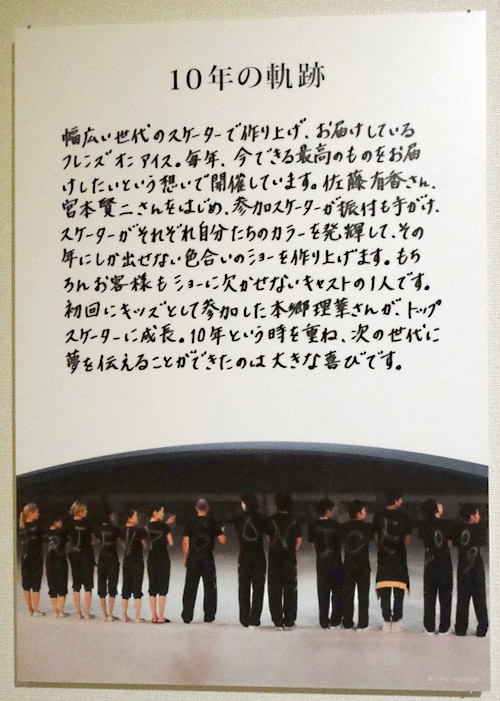 10年の軌跡
幅広い世代のスケーターで作り上げ、お届けしている
フレンズオンアイス。毎年、今できる最高のものをお届
けしたいという想いで開催しています。佐藤有香さん、
宮本賢二さんをはじめ、参加スケーターが振付も手がけ、
スケーターがそれぞれ自分たちのカラーを発揮して、その
年にしか出せない色合いのショーを作り上げます。もち
ろんお客様もショーに欠かせないキャストの1人です。
初回にキッズとして参加した本郷理華さんが、トップ
スケーターに成長。10年という時を重ね、次の世代に
夢を伝えることができたのは大きな喜びです。
FRIENDS ON ICE 2009